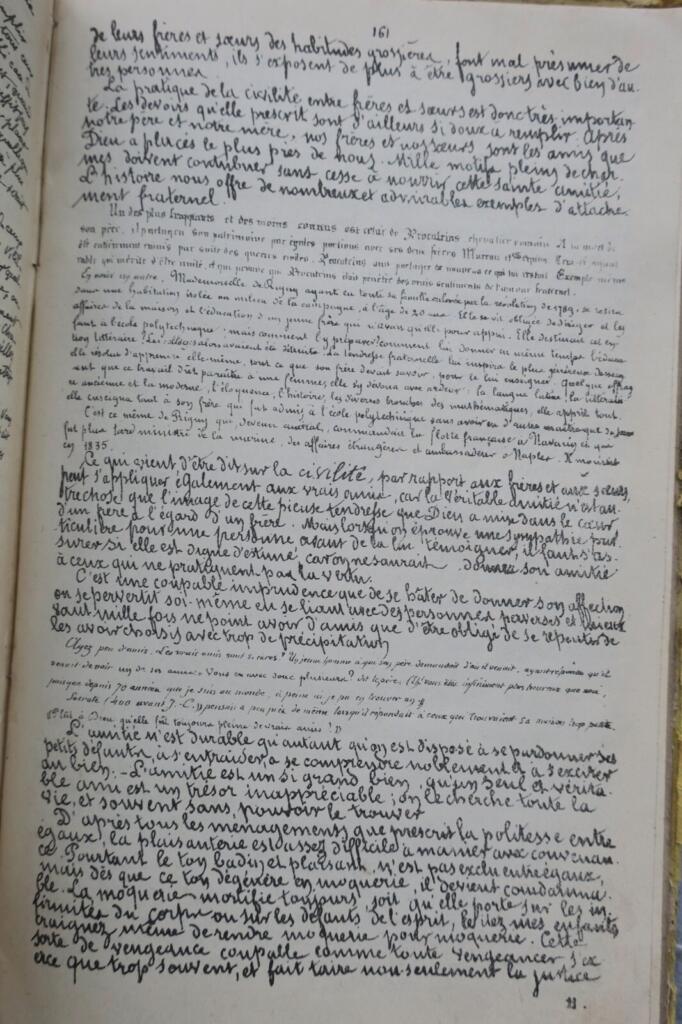 161
de leurs frères et sœurs des habitudes grossières, font mal présumer de
leurs sentiments, ils s'exposent de plus à être grossiers avec bien d'au-
tres personnes.
La pratique de la civilité entre frères et sœurs est donc très importan-
te. Les devoirs qu'elle prescrit sont d'ailleurs si doux à remplir. Après
notre père et notre mère, nos frères et nos sœurs sont les amis que
Dieu a placés le plus près de nous. Mille motifs pleins de char-
mes doivent contribuer sans cesse à nourrir cette sainte amitié,
L'histoire nous offre de nombreux et admirables exemples d'attache-
ment fraternel.
Un des plus frappants et des moins connus est celui de Procutéins chevalier romain. A la mort de
son père, il partagea son patrimoine par égales portions avec ses deux frères Murena et Scipion. Ceux-ci ayant
été entièrement ruinés par suite des guerres civiles. Procutéins sut partager de nouveau ce qui lui restait. Exemple mémo-
rable qui mérite d'être imité, et qui prouve que Procutéins était pénétré des vrais sentiments de l'amour fraternel.
En voici un autre. Mademoiselle de Rigny ayant eu toute sa famille enlevée par la révolution de 1789, se retira
dans une habitation isolée au milieu de la campagne, à l'âge de 20 ans. Elle se vit obligée de diriger et les
affaires de la maison et l'éducation d'un jeune frère qui n'avait qu'elle pour appui. Elle destinait cet en-
fant à l'école polytechnique; mais comment l'y préparer? comment lui donner en même temps l'éduca-
tion littéraire? Les collèges alors avaient été détruits. La tendresse fraternelle lui inspira le plus généreux dessein
elle résolut d'apprendre elle-même, tout ce que son frère devait savoir, pour le lui enseigner. Quelque effray-
ant que ce travail dût paraître à une femme, elle s'y dévoua avec ardeur: la langue latine, la littératu-
re ancienne et la moderne, l'éloquence, l'histoire, les diverses branches des mathématiques, elle apprit tout,
elle enseigna tout à son frère qui fut admis à l'école polytechnique sans avoir eu d'autre maître que sa sœur
C'est ce même de Rigny qui, devenu amiral, commandait la flotte française à Navarin et qui
fut plus tard ministre de la marine, des affaires étrangères et ambassadeur à Naples. Il mourut
en 1835.
Ce qui vient d'être dit sur la civilité, par rapport aux frères et aux sœurs,
peut s'appliquer également aux vrais amis, car la véritable amitié n'est au-
tre chose que l'image de cette pieuse tendresse que Dieu a mise dans le cœur
d'un frère à l'égard d'un frère. Mais lorsqu'on éprouve une sympathie par-
ticulière pour une personne avant de la lui témoigner, il faut s'as-
surer si elle est digne d'estime, car on ne saurait donner son amitié
à ceux qui ne pratiquent pas la vertu.
C'est une coupable imprudence que de se hâter de donner son affection,
on se pervertit soi-même en se liant avec des personnes perverses et
vaut mille fois ne point avoir d'amis que d'être obligé de se repentir de
les avoir choisis avec trop de précipitation
Ayez peu d'amis. Les vrais amis sont si rares! Un jeune homme à qui son père demandait d'où il venait, ayant répondu qu'il
venait de voir un de ses amis. Vous en avez donc plusieurs? dit le père. Vous êtes infiniment plus heureux que moi,
puisque depuis 70 années que je suis au monde, à peine ai-je pu en trouver un.
Socrate (400 avant J.-C.) pensait à peu près de même lorsqu'il répondait à ceux qui trouvaient sa maison trop petite.
Plût à Dieu, qu'elle fût toujours pleine de vrais amis!
L'amitié n'est durable qu'autant qu'on est disposé à se pardonner ses
petits défauts, à s'entraider, à se comprendre noblement et à s'exciter
au bien. - L'amitié est un si grand bien, qu'un seul et vérita-
ble ami est un trésor inappréciable; on le cherche toute la
vie, et souvent sans pouvoir le trouver
D'après tous les ménagements que prescrit la politesse entre
égaux, la plaisanterie est assez difficile à manier avec convenan-
ce. Pourtant le ton badin et plaisant n'est pas exclu entre égaux,
mais dès que ce ton dégénère en moquerie, il devient condamna-
ble. La moquerie mortifie toujours, soit qu'elle porte sur les in-
firmités du corps ou sur les défauts de l'esprit, évitez mes enfants
craignez même de rendre moquerie pour moquerie. Cette
sorte de vengeance coupable comme toute vengeance, s'ex-
erce que trop souvent, et fait taire non-seulement la justice
21.